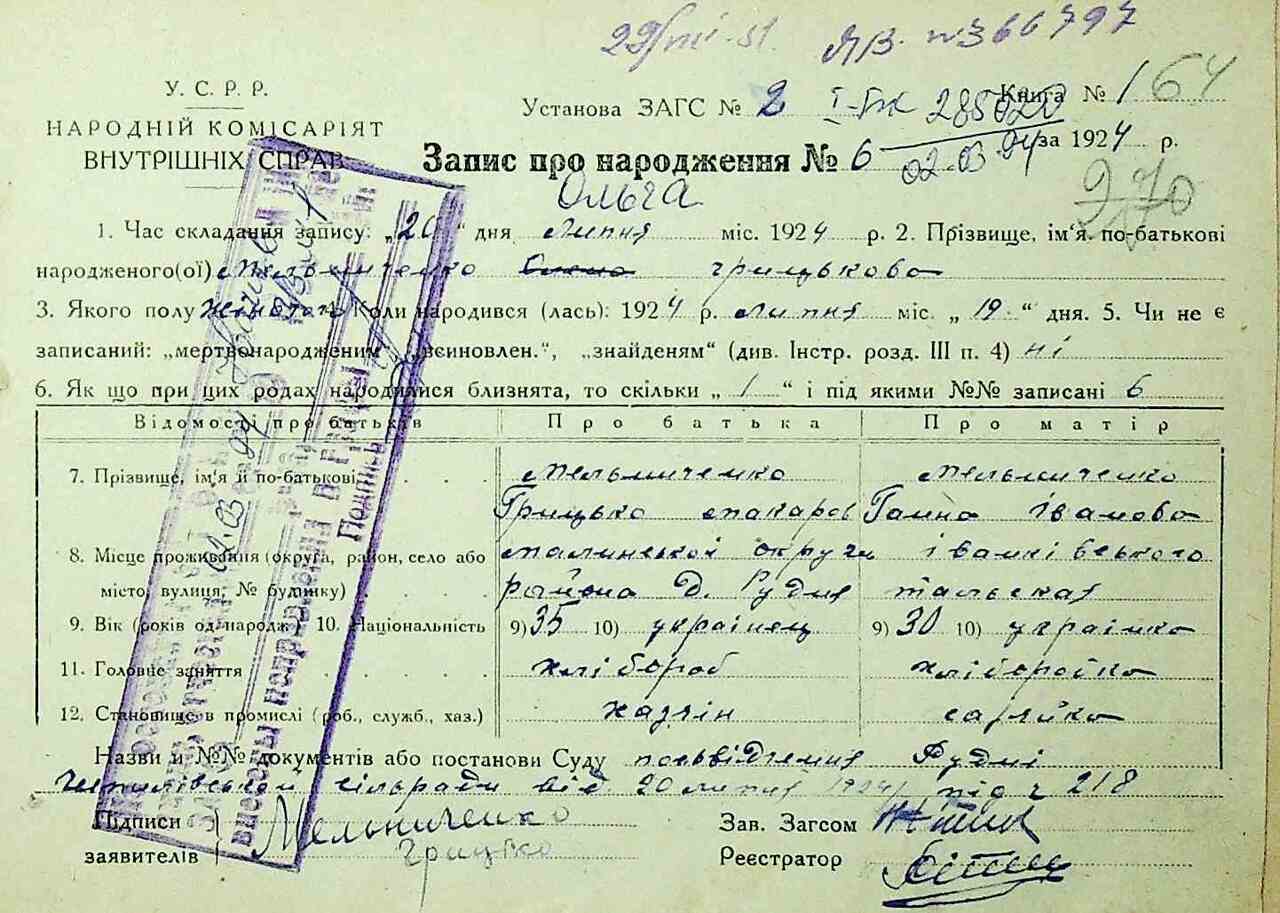 29/VIII-51. ЯВ. №366797
У. С. Р. Р.
НАРОДНІЙ КОМІСАРІЯТ
ВНУТРІШНІХ СПРАВ
Установа ЗАГС № 2 Книга № 1 64
I-БК 285020
02.03.94
Запис про народження № 6 за 1924 р.
270
Ольга
1. Час складання запису: „20“ дня Липня міс. 1924 р. 2. Прізвище, ім'я. по-батькові
народженого(ої) Мельниченко грицькова
3. Якого полу 4. Коли народився (лась): 1924 р. липня міс. „19“ дня. 5. Чи не є
записаний: „мертвонародженим“, „всиновлен.“, „знайденям“ (див. Інстр. розд. III п. 4) ні
6. Як що при цих родах народилися близнята, то скільки „1“ і під якими №№ записані 6
Відомості про батьків Про батька Про матір
7. Прізвище, ім'я й по-батькові Мельниченко Мельниченко
Грицько макаров Ганна Іванова
8. Місце проживання (округа, район, село або малинської округи іванківського
місто, вулиця, № будинку) района Д. Рудня тальская
9. Вік (років од народж.) 10. Національність 9) 35 10) українець 9) 30 10) українка
11. Головне заняття хлібороб хліборобка
12. Становище в промислі (роб., служб., хаз.) хазяін
Назви й №№ документів або постанови Суду посьвідчення Рудні
сільради від 20 липня 1924 під ч 218
Підписи Мельниченко Зав. Загсом
заявителів грицько Реєстратор
внесены исправления в графы
Подпись